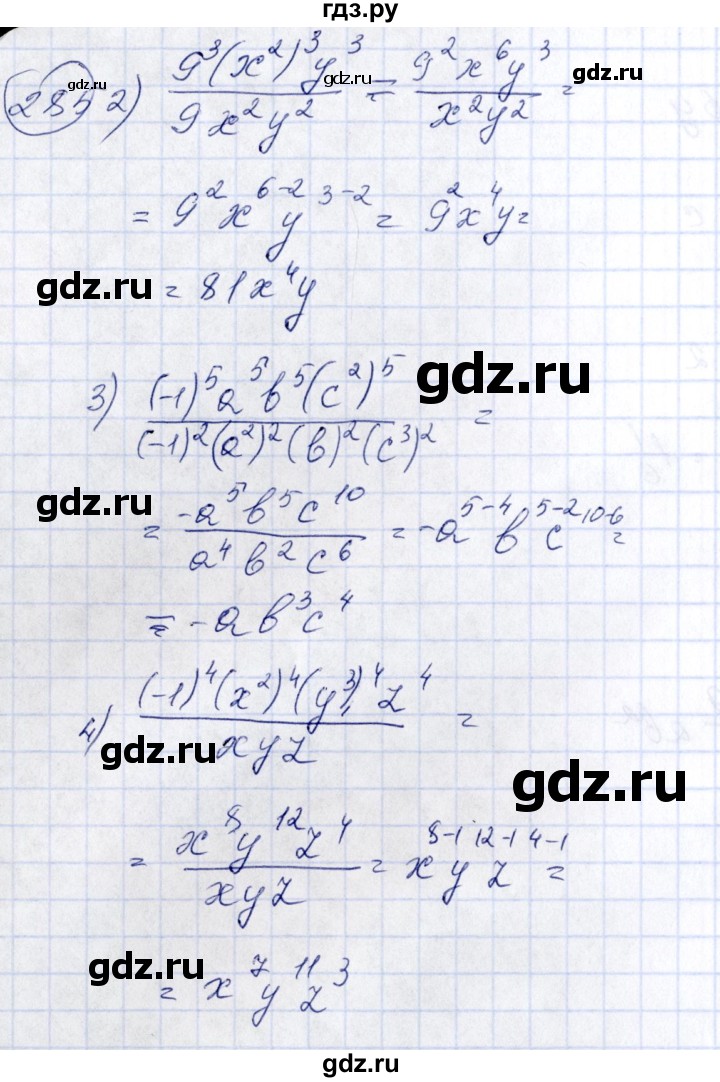 гдз.ру
gdz.ru gdz.ru
285 2) 9³(x²)³y³ / 9x²y² = 9²x⁶y³ / x²y² =
= 9²x⁶⁻²y³⁻² = 9²x⁴y =
gdz.ru = 81x⁴y
gdz.ru
3) (-1)⁵a⁵b⁵(c²)⁵ / (-1)²(a²)²(b)²(c³)² =
gdz.ru
= -a⁵b⁵c¹⁰ / a⁴b²c⁶ = -a⁵⁻⁴b⁵⁻²c¹⁰⁻⁶ =
= -ab³c⁴
4) (-1)⁴(x²)⁴(y³)⁴z⁴ / xyz =
gdz.ru
gdz.ru
= x⁸y¹²z⁴ / xyz = x⁸⁻¹y¹²⁻¹z⁴⁻¹ =
gdz.ru
= x⁷y¹¹z³
gdz.ru